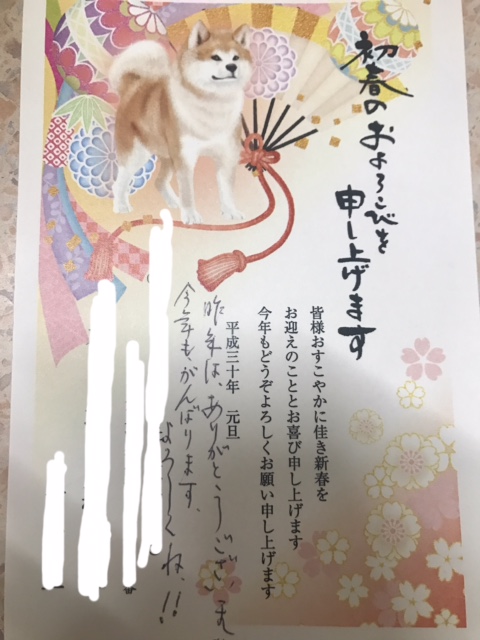 初春のおよろこびを
申し上げます
皆様おすこやかに佳き新春を
お迎えのこととお喜び申し上げます
今年もどうぞよろしくお願い申し上げます
平成三十年 元旦
昨年は、ありがとうございま
今年も、がんばります。
よろしくね!!